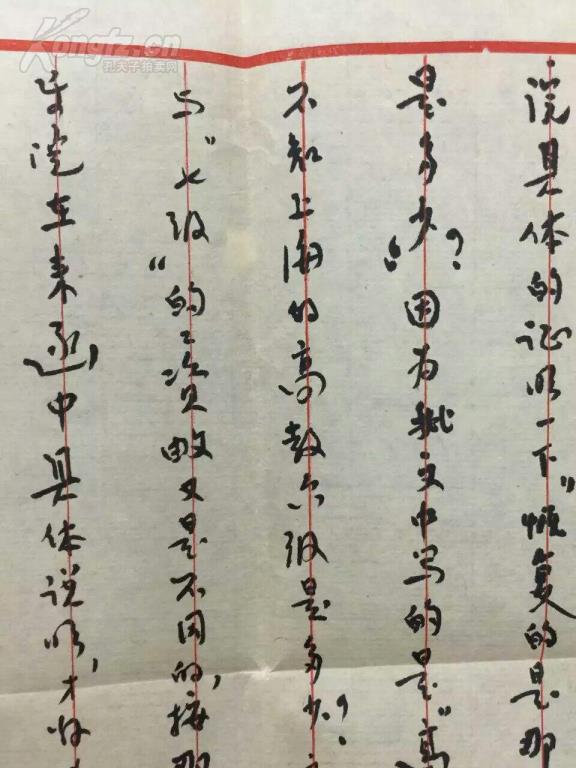 院具体的证明一下"恢复的是那
是多少"？因为批文中写的是"高
不知上海的高教六级是多少？
与"七级"的工资 又是不同的，按那
贵院在来函中具体说明，才好
Kongfz.cn
孔夫子拍卖网